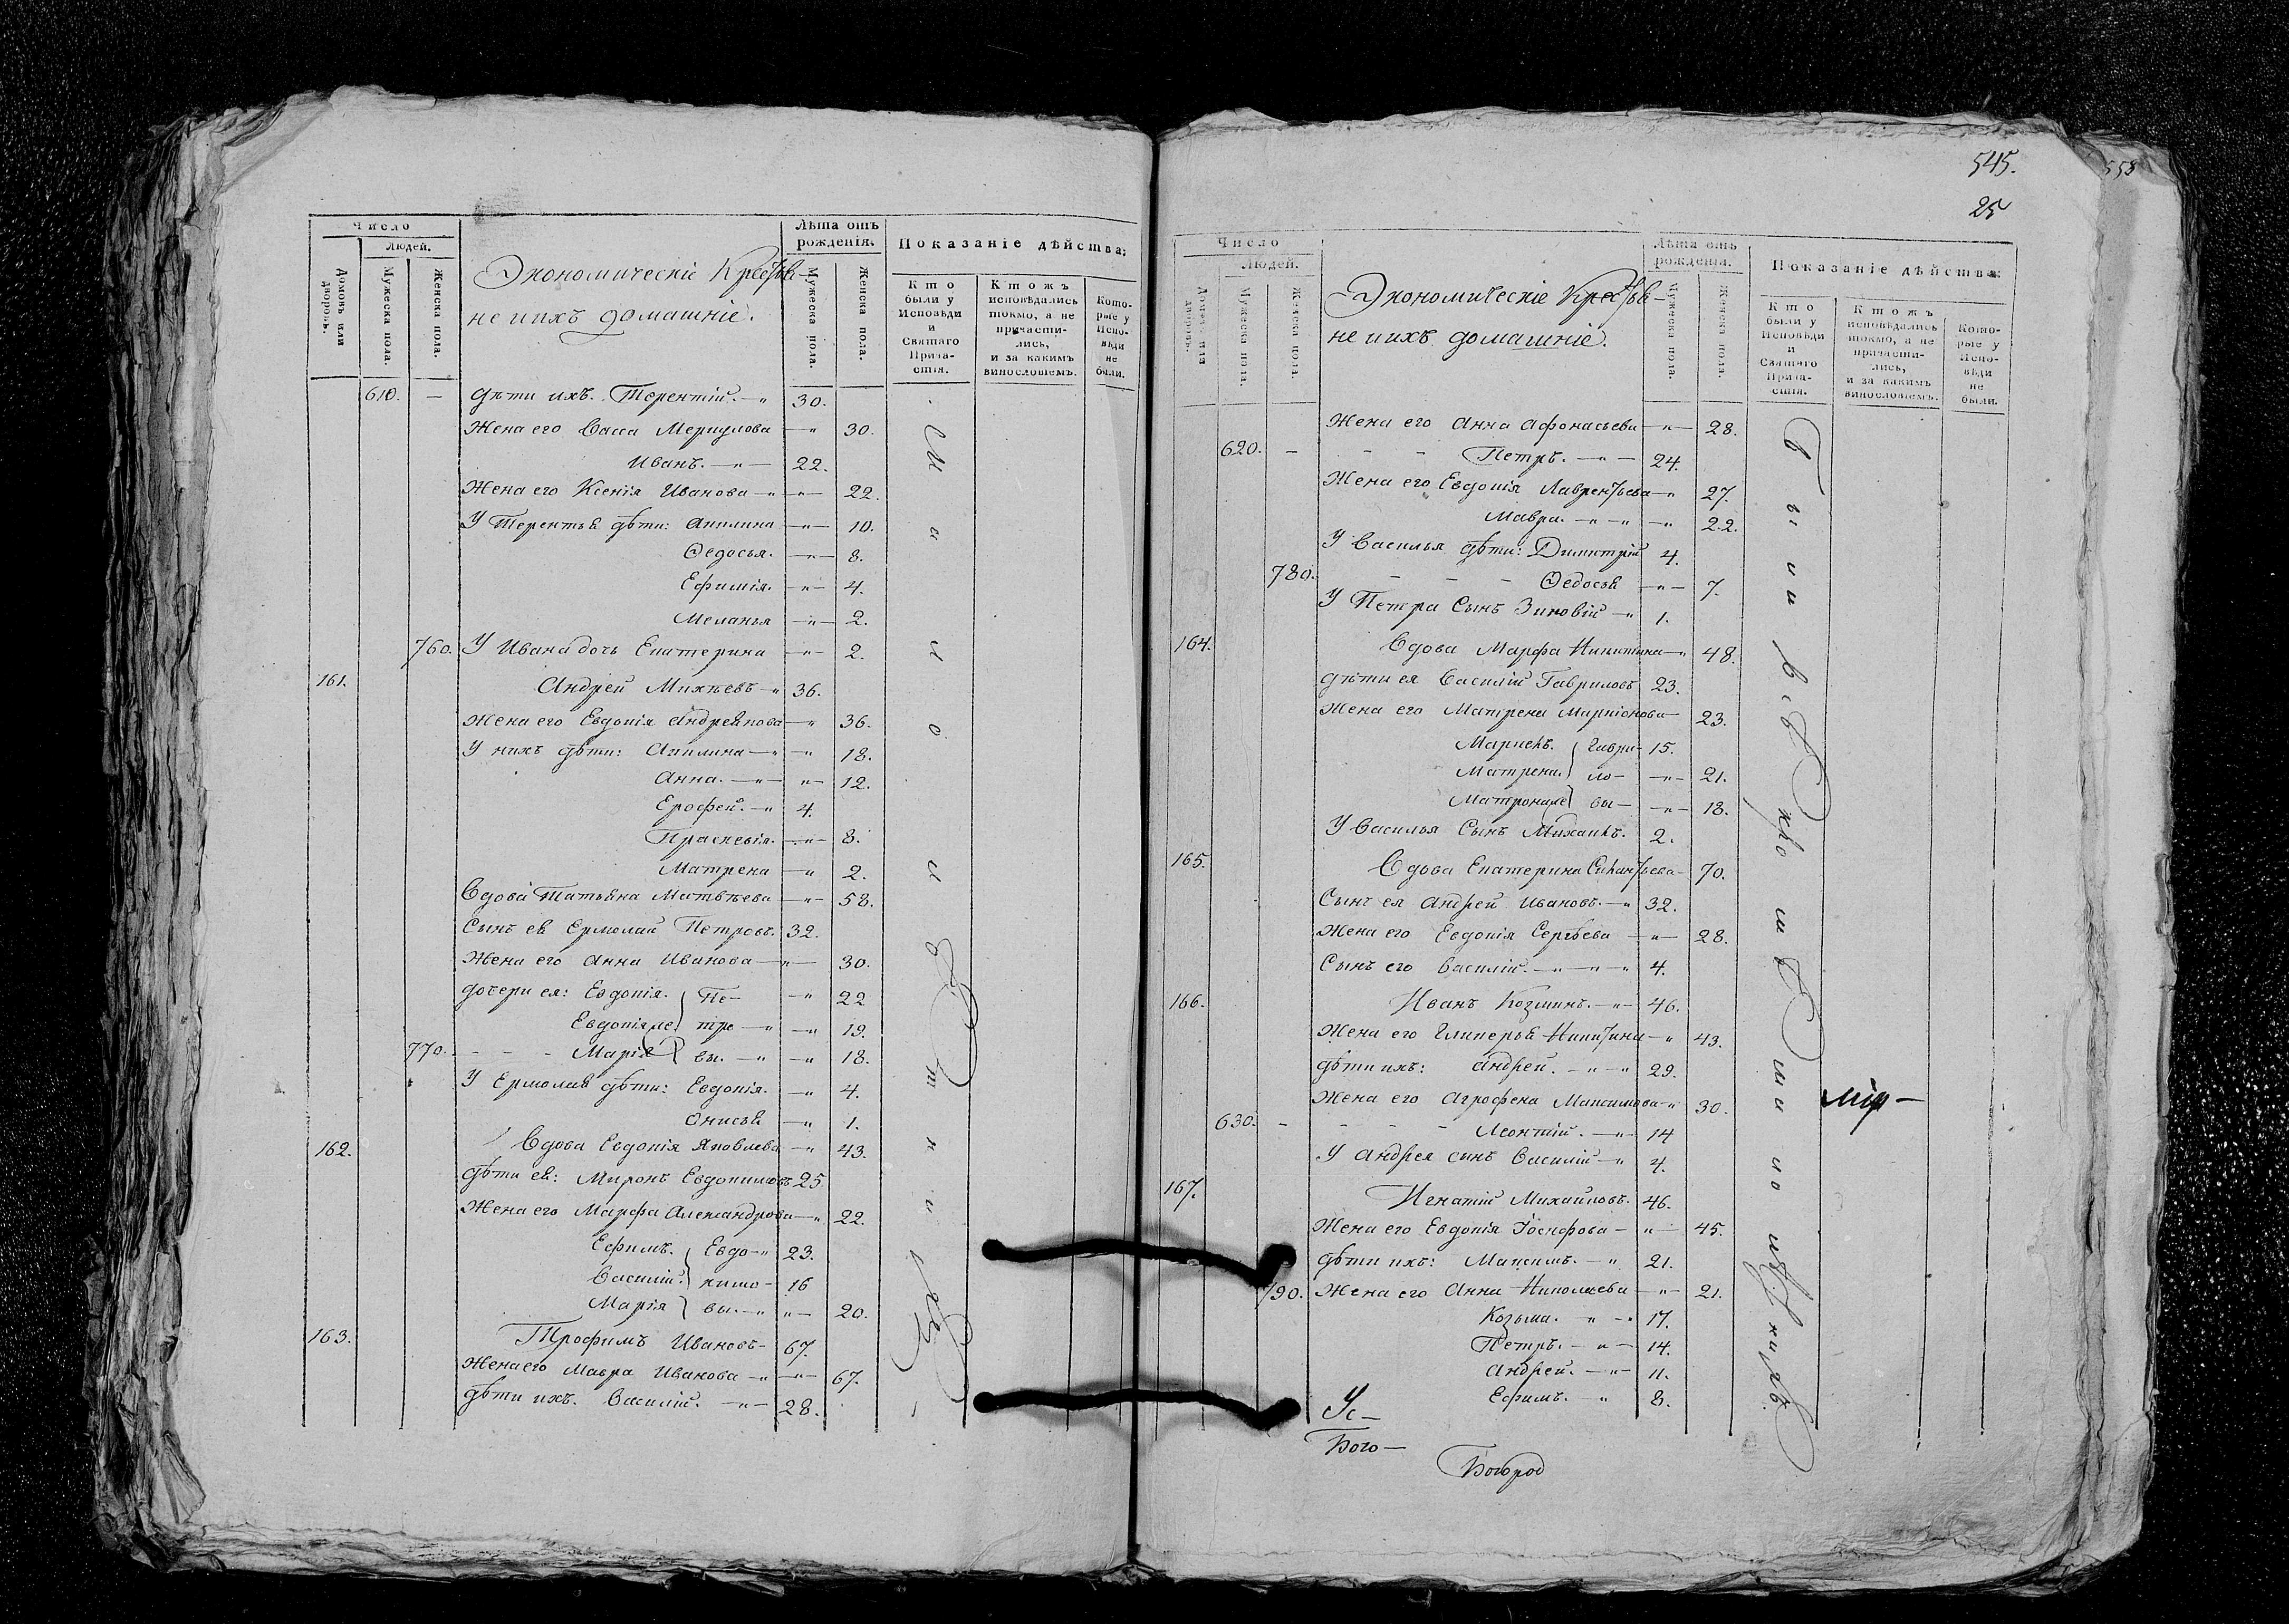 Число
Людей.
Домовъ или дворовъ.
Мужеска пола.
Женска пола.
Экономическіе Крестья-
не и ихъ домашніе.
Лѣта отъ рожденія.
Мужеска пола.
Женска пола.
Показаніе дѣйства:
Кто были у Исповѣди и Святаго Прича-стія.
Ктожъ исповѣдались токмо, а не причасти-лись, и за какимъ винословіемъ.
Кото-рые у Испо-вѣди не были.
610. — дѣти ихъ. Терентій. —„ 30.
Жена его Васса Меркулова —„ 30.
Иванъ. —„— 22.
Жена его Ксенія Иванова —„—„— 22.
У Терентья дѣти: Акилина —„— 10.
Ѳедосья. —„— 8.
Ефимія. —„— 4.
Меланья —„— 2.
760. У Ивана дочь Екатерина —„— 2.
161. Андрей Михѣевъ —„ 36.
Жена его Евдокія Андреянова —„ 36.
У нихъ дѣти: Акилина —„—„ 18.
Анна. —„—„— 12.
Ерофей. —„ 4.
Праскевія. —„— 8.
Матрена —„ 2.
Вдова Татьяна Матвѣева —„— 58.
Сынъ ея Ермолай Петровъ. 32.
Жена его Анна Иванова —„— 30.
дочери ея: Евдокія. Пе- —„ 22
Евдокія же тро —„—„ 19.
770. - - - Марія вы. —„—„ 18.
У Ермолая дѣти: Евдокія. —„ 4.
Онисья —„ 1.
162. Вдова Евдокія Яковлева —„ 43.
дѣти ея: Миронъ Евдокимовъ 25
Жена его Марфа Александрова —„ 22.
Ефимъ. Евдо-„ 23.
Василій. кимо- 16
Марія вы. —„„— 20.
163. Трофимъ Ивановъ- 67.
Жена его Мавра Иванова —„—„— 67.
дѣти ихъ. Василій. —„— 28.
545.
25
553
Число
Людей.
Мужеска пола.
Женска пола.
Экономическіе Крестья-
не и ихъ домашніе.
Лѣта отъ рожденія.
Мужеска пола.
Женска пола.
Показаніе дѣйства:
Кто были у Исповѣди и Святаго Прича-стія.
Ктожъ исповѣдались токмо, а не причасти-лись, и за какимъ винословіемъ.
Кото-рые у Испо-вѣди не были.
Жена его Анна Афонасьева —„— 28.
620. - - - Петръ. —„— 24.
Жена его Евдокія Лаврентьева —„ 27.
Мавра. —„—„—„ 22.
У Василья дѣти: Димитрій 4.
780. - - - Ѳедосья —„— 7.
У Петра Сынъ Зиновій —„ 1.
164. Вдова Марфа Никитина —„ 48.
дѣти ея Василій Гавриловъ 23.
Жена его Матрена Маркіонова — 23.
Гаври- 15.
Матрена. ло- —„— 21.
вы- —„— 18.
У Василья Сынъ Михаилъ. 2.
165. Вдова Екатерина 70.
Сынъ ея Андрей Ивановъ. —„ 32.
Жена его Евдокія Сергѣева —„— 28.
Сынъ его Василій. —„—„—„ 4.
166. Иванъ Козминъ. —„— 46.
Жена его Гликерья Никитина —„ 43.
дѣти ихъ: Андрей. —„—„ 29.
Жена его Агрофена Максимова —„ 30.
630. - - - Леонтій. —„— 14
У Андрея сынъ Василій —„ 4.
167. Игнатій Михайловъ. 46.
Жена его Евдокія Іосифова —„— 45.
дѣти ихъ: Максимъ. —„ 21.
790. Жена его Анна Николаева —„— 21.
Козьма. „ — 17.
Петръ. —„— 14.
Андрей. —„— 11.
Ефимъ. „ 8.
Были всѣ кромѣ малолѣтнихъ
Ус—
Бого—
Богород